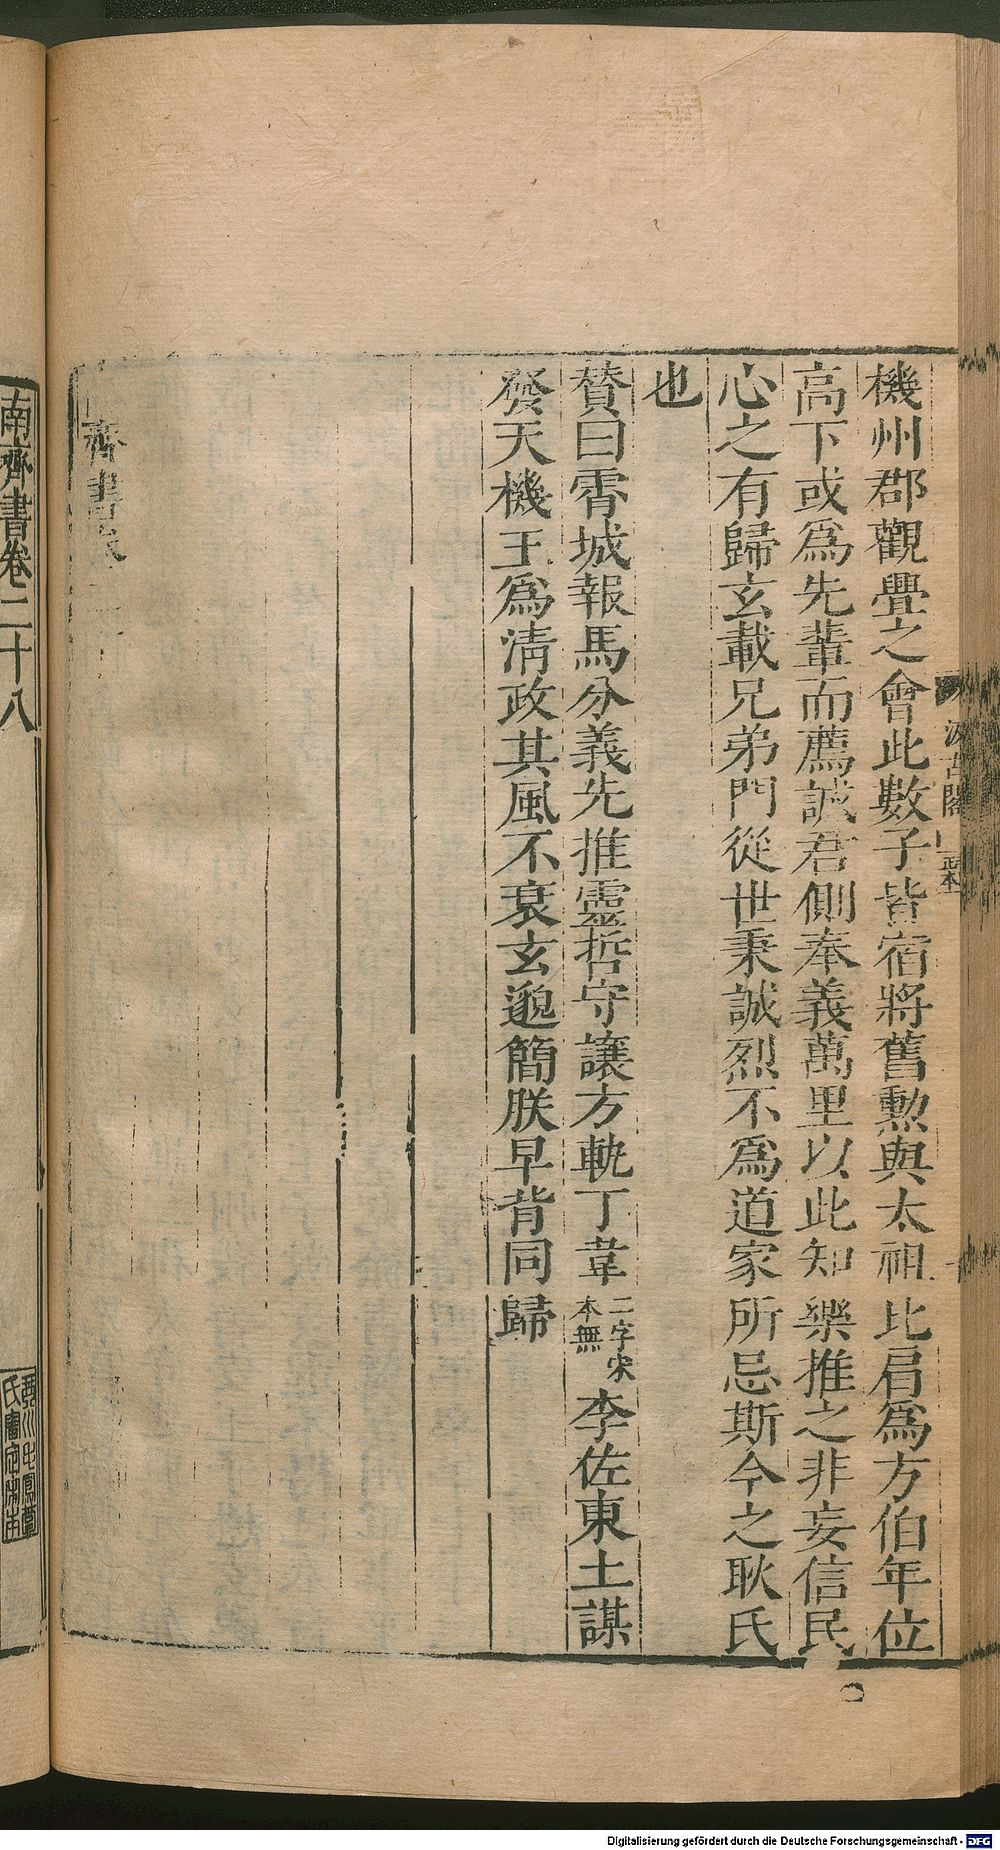 機州郡觀釁之會此數子皆宿將舊勲與太祖比肩爲方伯年位
高下或爲先輩而薦誠君側奉義萬里以此知樂推之非妄信民
心之有歸玄載兄弟門從世秉誠烈不爲道家所忌斯今之耿氏
也
贊曰霄城報馬分義先推靈哲守讓方軌丁韋二字宋本無李佐東土謀
發天機王爲清政其風不衰玄邈簡朕早背同歸
齊書
汲古閣
正本
南齊書卷二十八
Digitalisierung gefördert durch die Deutsche Forschungsgemeinschaft - DFG